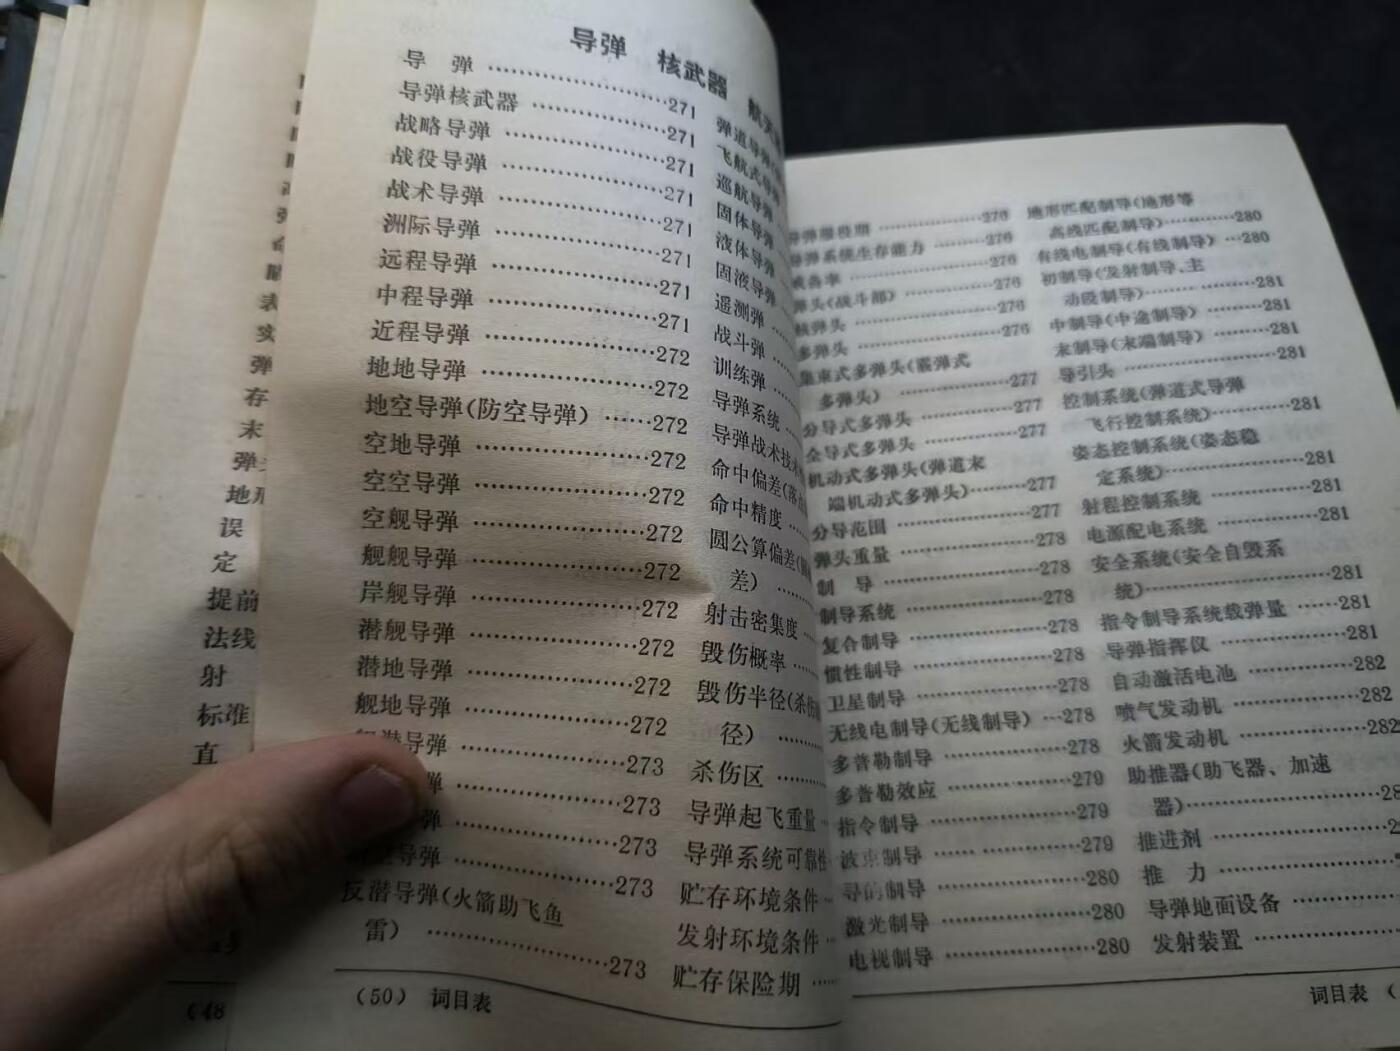 误
定
提前
法线
射
标准
直
导弹 核武器 航天
导 弹 ……………………271
导弹核武器 ………………271
战略导弹 …………………271
战役导弹 …………………271
战术导弹 …………………271
洲际导弹 …………………271
远程导弹 …………………271
中程导弹 …………………271
近程导弹 …………………272
地地导弹 …………………272
地空导弹(防空导弹) ……272
空地导弹 …………………272
空空导弹 …………………272
空舰导弹 …………………272
舰舰导弹 …………………272
岸舰导弹 …………………272
潜舰导弹 …………………272
潜地导弹 …………………272
舰地导弹 …………………272
导弹 …………………273
弹 …………………273
弹 …………………273
导弹 …………………273
反潜导弹(火箭助飞鱼
雷) …………………273
(50) 词目表
弹道导弹
飞航式导弹
巡航导弹
固体导弹
液体导弹
固液导弹
遥测弹 ……
战斗弹 ……
训练弹 ……
导弹系统 ……
导弹战术技术
命中偏差(落
命中精度 ……
圆公算偏差(圆
差) ……
射击密集度 ……
毁伤概率 ……
毁伤半径(杀伤
径) ……
杀伤区 ……
导弹起飞重量 …
导弹系统可靠性
贮存环境条件 …
发射环境条件 …
贮存保险期 ……
…………………276
导弹系统生存能力 ………276
…………………276
弹头(战斗部) ……………276
核弹头 …………………276
多弹头 …………………276
集束式多弹头(霰弹式
多弹头) …………………277
分导式多弹头 ……………277
全导式多弹头 ……………277
机动式多弹头(弹道末
端机动式多弹头)…………277
分导范围 …………………277
弹头重量 …………………278
制 导 …………………278
制导系统 …………………278
复合制导 …………………278
惯性制导 …………………278
卫星制导 …………………278
无线电制导(无线制导) …278
多普勒制导 ………………278
多普勒效应 ………………279
指令制导 …………………279
波束制导 …………………279
寻的制导 …………………280
激光制导 …………………280
电视制导 …………………280
地形匹配制导(地形等
高线匹配制导)……………280
有线电制导(有线制导) …280
初制导(发射制导、主
动段制导)…………………281
中制导(中途制导) ………281
末制导(末端制导) ………281
导引头 …………………281
控制系统(弹道式导弹
飞行控制系统)……………281
姿态控制系统(姿态稳
定系统)…………………281
射程控制系统 ……………281
电源配电系统 ……………281
安全系统(安全自毁系
统)…………………281
指令制导系统载弹量 ……281
导弹指挥仪 ………………281
自动激活电池 ……………282
喷气发动机 ………………282
火箭发动机 ………………282
助推器(助飞器、加速
器)…………………
推进剂 …………………
推 力 …………………
导弹地面设备 ……………
发射装置 …………………
词目表 (